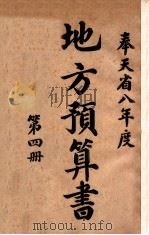 奉天省八年度
地方預算書
第四册
mtoou.info